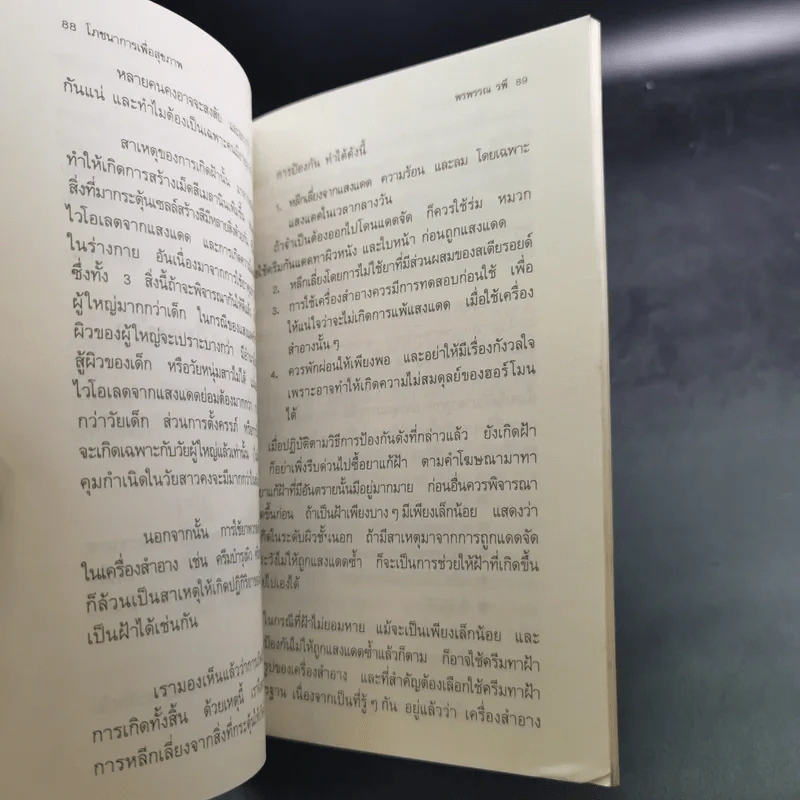 88 โภชนาการเพื่อสุขภาพ
หลายคนคงอาจจะสงสัย
กันแน่ และทำไมต้องเป็นเฉพาะ
สาเหตุของการเกิดฝ้านั้น
ทำให้เกิดการสร้างเม็ดสีเมลานินเพิ่มขึ้น
สิ่งที่มากระตุ้นเซลล์สร้างสีมีหลายสิ่งด้วยกัน
ไวโอเลตจากแสงแดด และการเกิด
ในร่างกาย อันเนื่องมาจากการใช้ยา
ซึ่งทั้ง 3 สิ่งนี้ถ้าจะพิจารณากันให้ดี
ผู้ใหญ่มากกว่าเด็ก ในกรณีของแสง
ผิวของผู้ใหญ่จะเปราะบางกว่า
สู้ผิวของเด็ก หรือวัยหนุ่มสาวไม่ได้
ไวโอเลตจากแสงแดดย่อมต้องมากกว่า
กว่าวัยเด็ก ส่วนการตั้งครรภ์
จะเกิดเฉพาะกับวัยผู้ใหญ่แล้วเท่านั้น
คุมกำเนิดในวัยสาวคงจะมีมากกว่า
นอกจากนั้น การใช้ยา
ในเครื่องสำอาง เช่น ครีมบำรุงผิว
ก็ล้วนเป็นสาเหตุให้เกิดปฏิกิริยา
เป็นฝ้าได้เช่นกัน
เรามองเห็นแล้วว่าการ
การเกิดทั้งสิ้น ด้วยเหตุนี้
การหลีกเลี่ยงจากสิ่งที่กระตุ้น
พรพรรณ รพี 89
การป้องกัน ทำได้ดังนี้
1. หลีกเลี่ยงจากแสงแดด ความร้อน และลม โดยเฉพาะ
แสงแดดในเวลากลางวัน
ถ้าจำเป็นต้องออกไปโดนแดดจัด ก็ควรใช้ร่ม หมวก
ใช้ครีมกันแดดทาผิวหนัง และใบหน้า ก่อนถูกแสงแดด
2. หลีกเลี่ยงโดยการไม่ใช้ยาที่มีส่วนผสมของสเตียรอยด์
3. การใช้เครื่องสำอางควรมีการทดสอบก่อนใช้ เพื่อ
ให้แน่ใจว่าจะไม่เกิดการแพ้แสงแดด เมื่อใช้เครื่อง
สำอางนั้น ๆ
4. ควรพักผ่อนให้เพียงพอ และอย่าให้มีเรื่องกังวลใจ
เพราะอาจทำให้เกิดความไม่สมดุลย์ของฮอร์โมน
ได้
เมื่อปฏิบัติตามวิธีการป้องกันดังที่กล่าวแล้ว ยังเกิดฝ้า
ก็อย่าเพิ่งรีบด่วนไปซื้อยาแก้ฝ้า ตามคำโฆษณามาทา
ยาแก้ฝ้าที่มีอันตรายนั้นมีอยู่มากมาย ก่อนอื่นควรพิจารณา
ขึ้นก่อน ถ้าเป็นฝ้าเพียงบาง ๆ มีเพียงเล็กน้อย แสดงว่า
เกิดในระดับผิวชั้นนอก ถ้ามีสาเหตุมาจากการถูกแดดจัด
ระวังไม่ให้ถูกแสงแดดซ้ำ ก็จะเป็นการช่วยให้ฝ้าที่เกิดขึ้น
ไปเองได้
ในกรณีที่ฝ้าไม่ยอมหาย แม้จะเป็นเพียงเล็กน้อย และ
ป้องกันไม่ให้ถูกแสงแดดซ้ำแล้วก็ตาม ก็อาจใช้ครีมทาฝ้า
รูปของเครื่องสำอาง และที่สำคัญต้องเลือกใช้ครีมทาฝ้า
เนื่องจากเป็นที่รู้ ๆ กัน อยู่แล้วว่า เครื่องสำอาง